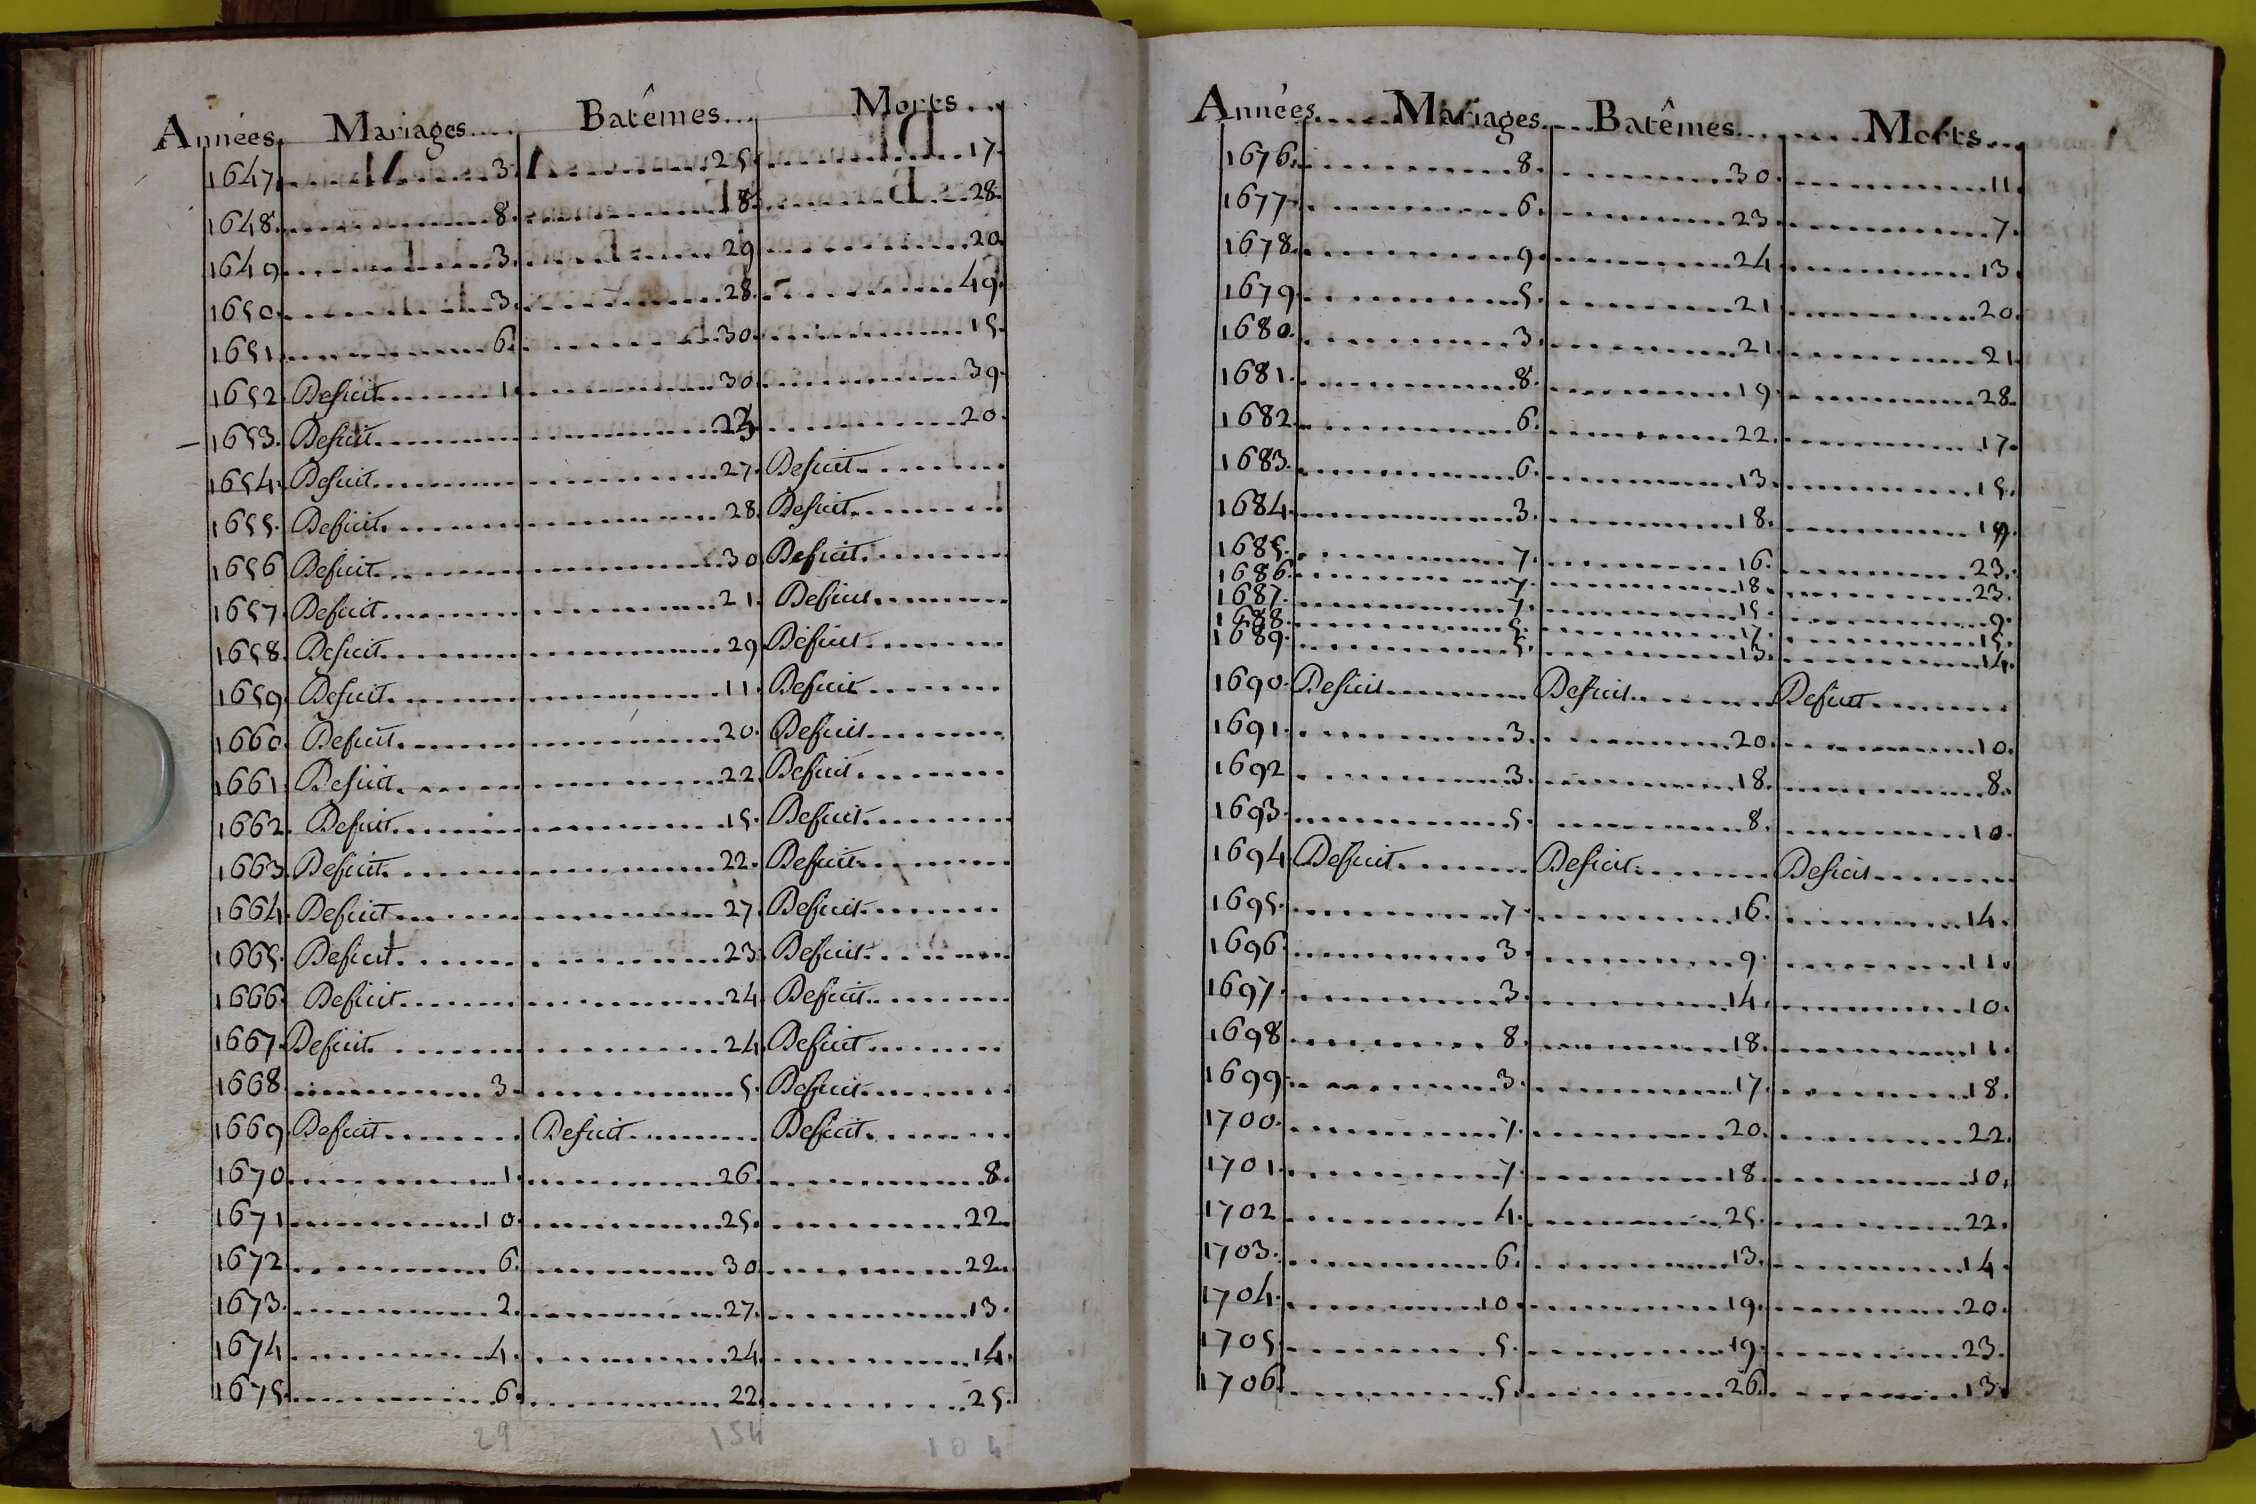 Années. Mariages.... Batêmes... Morts...
1647. 3. 25. 17.
1648. 8. 18. 28.
1649. 3. 29. 20.
1650. 3. 28. 49.
1651. 6. 30. 15.
1652. Deficit 1. 30. 39.
1653. Deficit 23. 20.
1654. Deficit 27. Deficit
1655. Deficit 28. Deficit
1656 Deficit 30 Deficit
1657. Deficit 21. Deficit
1658. Deficit 29 Deficit
1659. Deficit 11. Deficit
1660. Deficit 20. Deficit
1661. Deficit 22. Deficit
1662. Deficit 15. Deficit
1663. Deficit 22. Deficit
1664. Deficit 27. Deficit
1665. Deficit 23. Deficit
1666. Deficit 24 Deficit
1667. Deficit 24. Deficit
1668. 3. 5. Deficit
1669. Deficit Deficit Deficit
1670 1. 26. 8.
1671 10. 25. 22.
1672 6. 30. 22.
1673. 2. 27. 13.
1674 4. 24. 14.
1675. 6. 22. 25.
29 154 104
Années. Mariages. Batêmes. Morts...
1676. 8. 30. 11.
1677. 6. 23. 7.
1678. 9. 24. 13.
1679. 5. 21. 20.
1680. 3. 21. 21.
1681. 8. 19. 28.
1682. 6. 22. 17.
1683. 6. 13. 15.
1684. 3. 18. 19.
1685. 7. 16. 23.
1686. 7. 18. 23.
1687. 7. 15. 9.
1688. 5. 17. 15.
1689. 5. 13. 14.
1690. Deficit Deficit Deficit
1691. 3. 20. 10.
1692 3. 18. 8.
1693. 5. 8. 10.
1694. Deficit Deficit Deficit
1695. 7. 16. 14.
1696. 3. 9. 11.
1697. 3. 14. 10.
1698 8. 18. 11.
1699. 3. 17. 18.
1700. 7. 20. 22.
1701. 7. 18. 10.
1702 4. 25. 22.
1703. 6. 13. 14.
1704. 10. 19. 20.
1705. 5. 19. 23.
1706. 5. 26. 13.